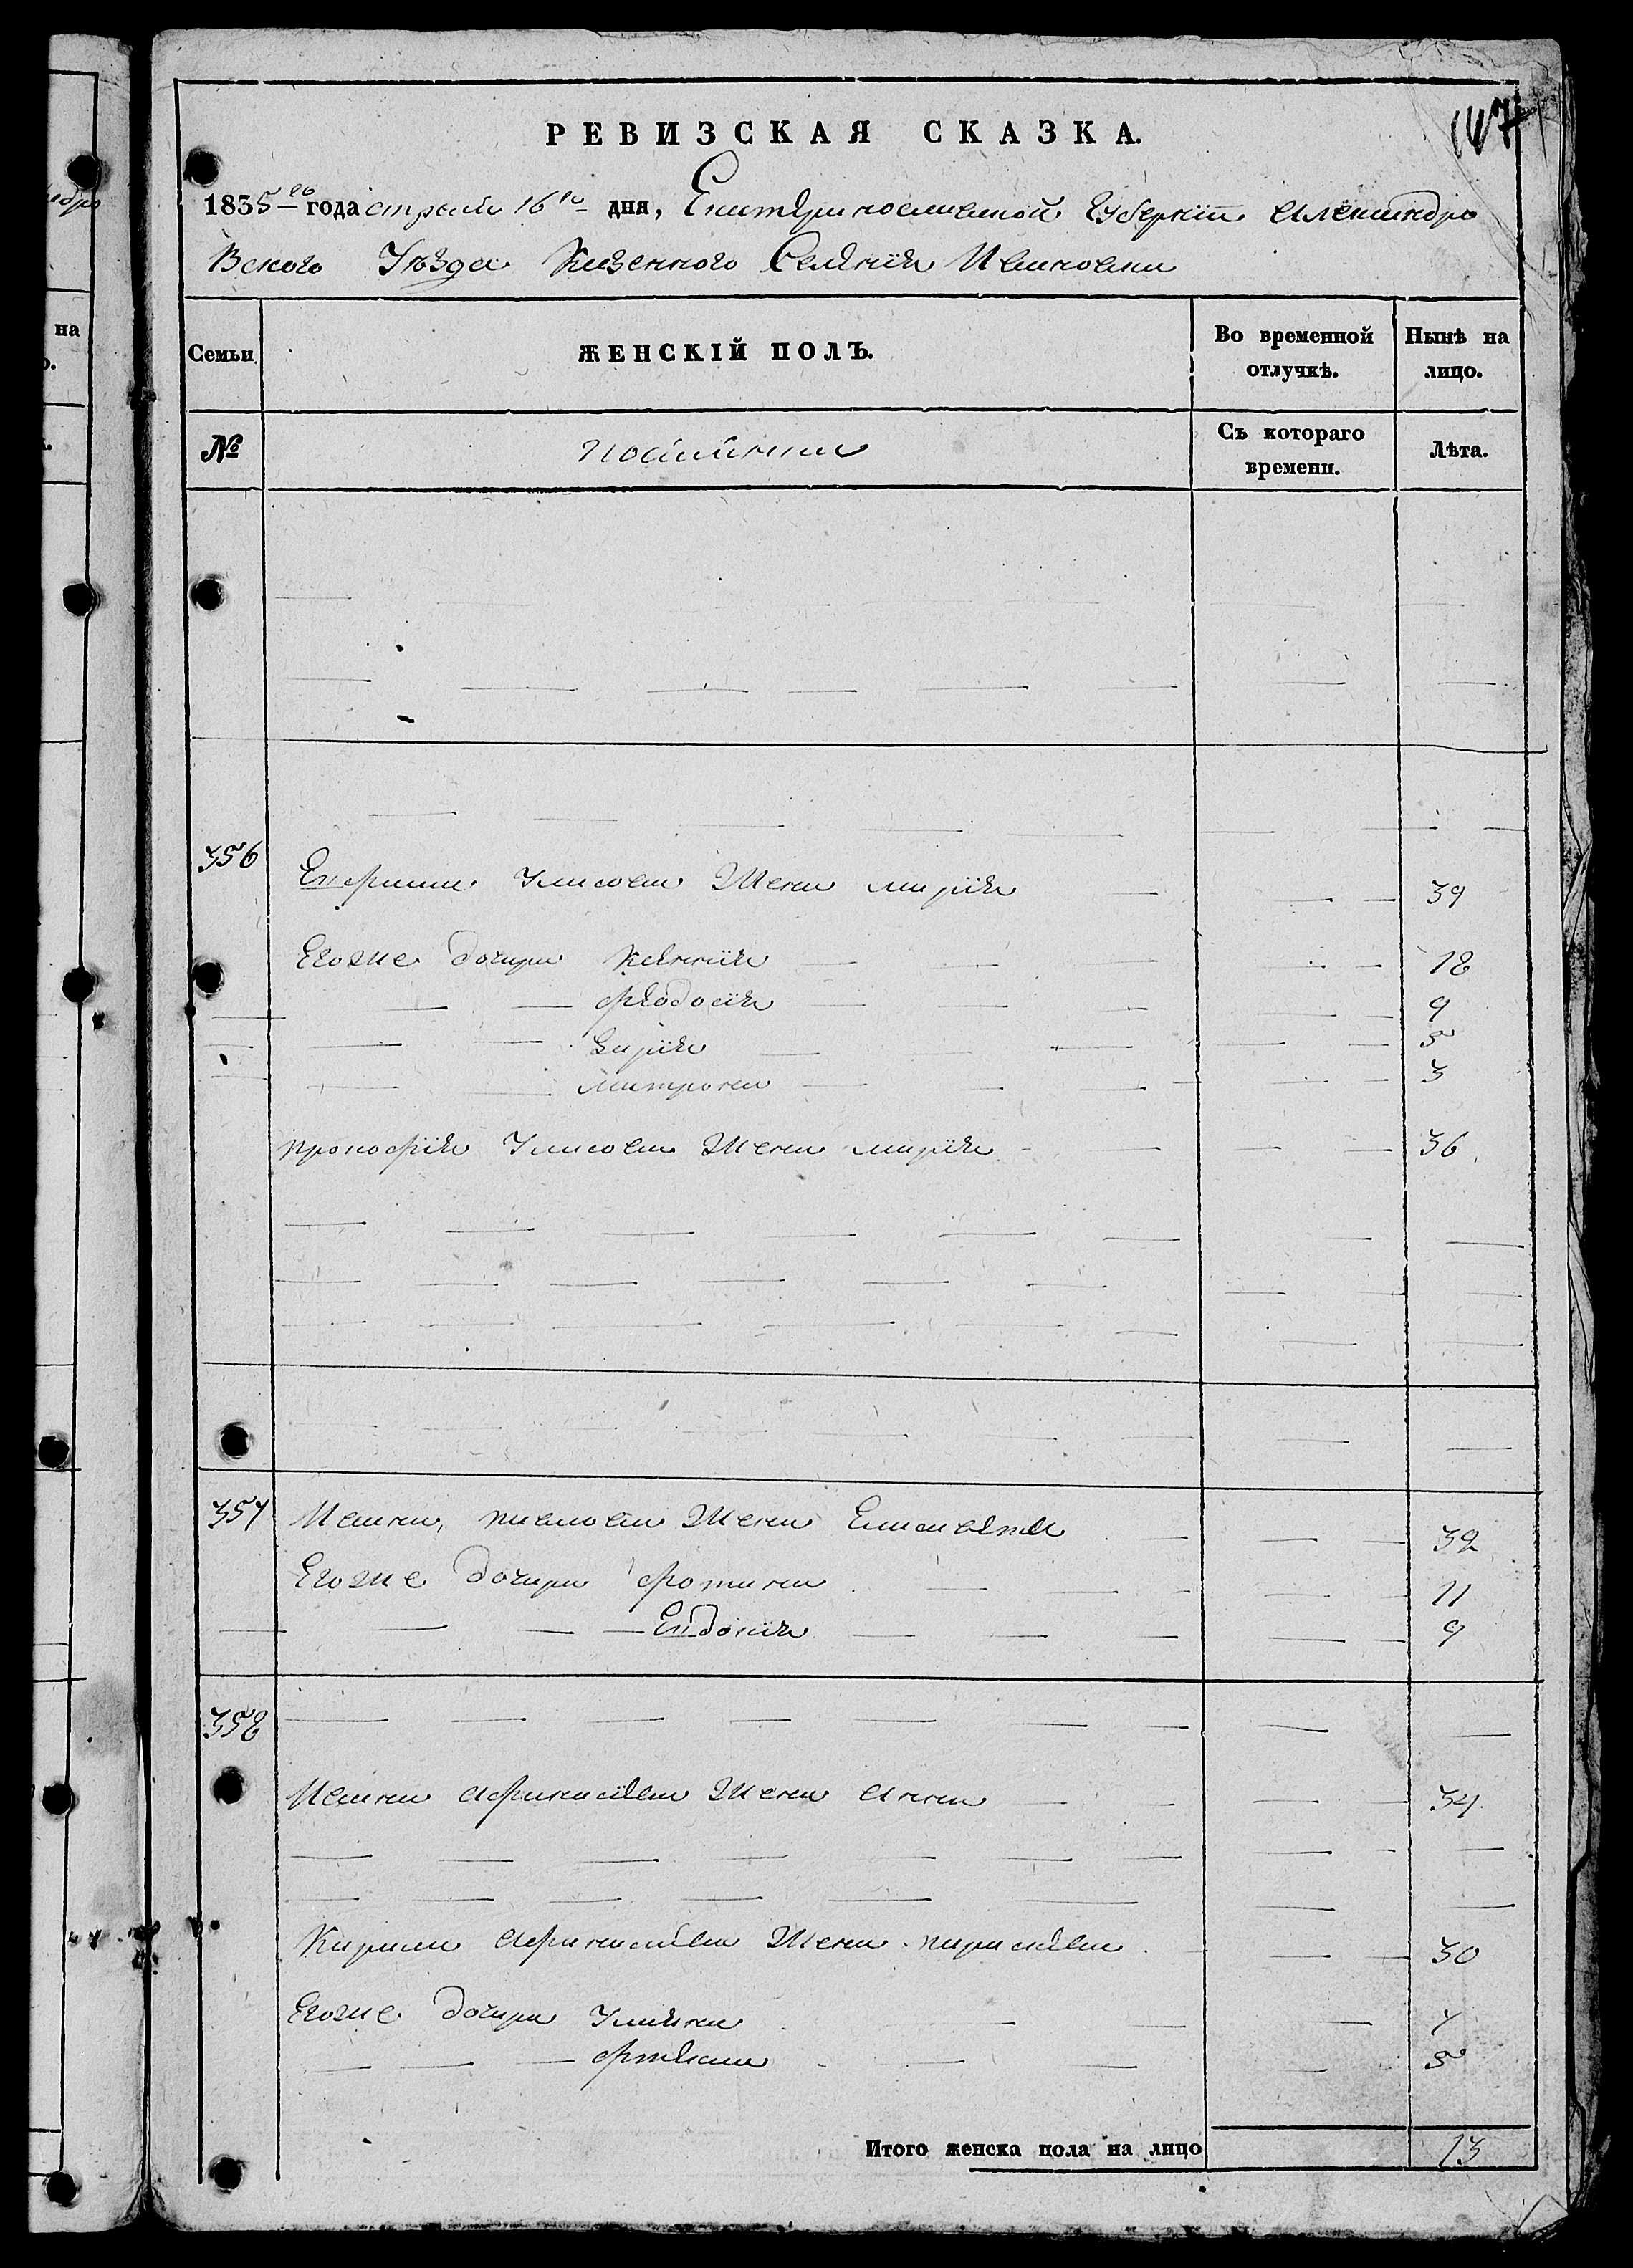 147
РЕВИЗСКАЯ СКАЗКА.
1835 го года апреля 16 го дня, Екатеринославской Губернїи Александро
вского Уѣзда Казенного Селенїя Ивановки
Семьи. ЖЕНСКІЙ ПОЛЪ. Во временной отлучкѣ. Нынѣ на лицо.
№ Съ котораго времени. Лѣта.
356
Ефрима Уласова Жена марїя 39
Егоже дочери ксенїя 18
феодосїя 9
дарїя 5
матрона 3
прокофїя Уласова Жена марїя 36
357 Ивана, павлова Жена Елисавета 32
Егоже дочери фотина 11
Евдокїя 9
358
Ивана афанасїева Жена анна 34
Кирила афанасїева Жена параскева 30
Егоже дочери Улияна 7
5
Итого женска пола на лицо 13